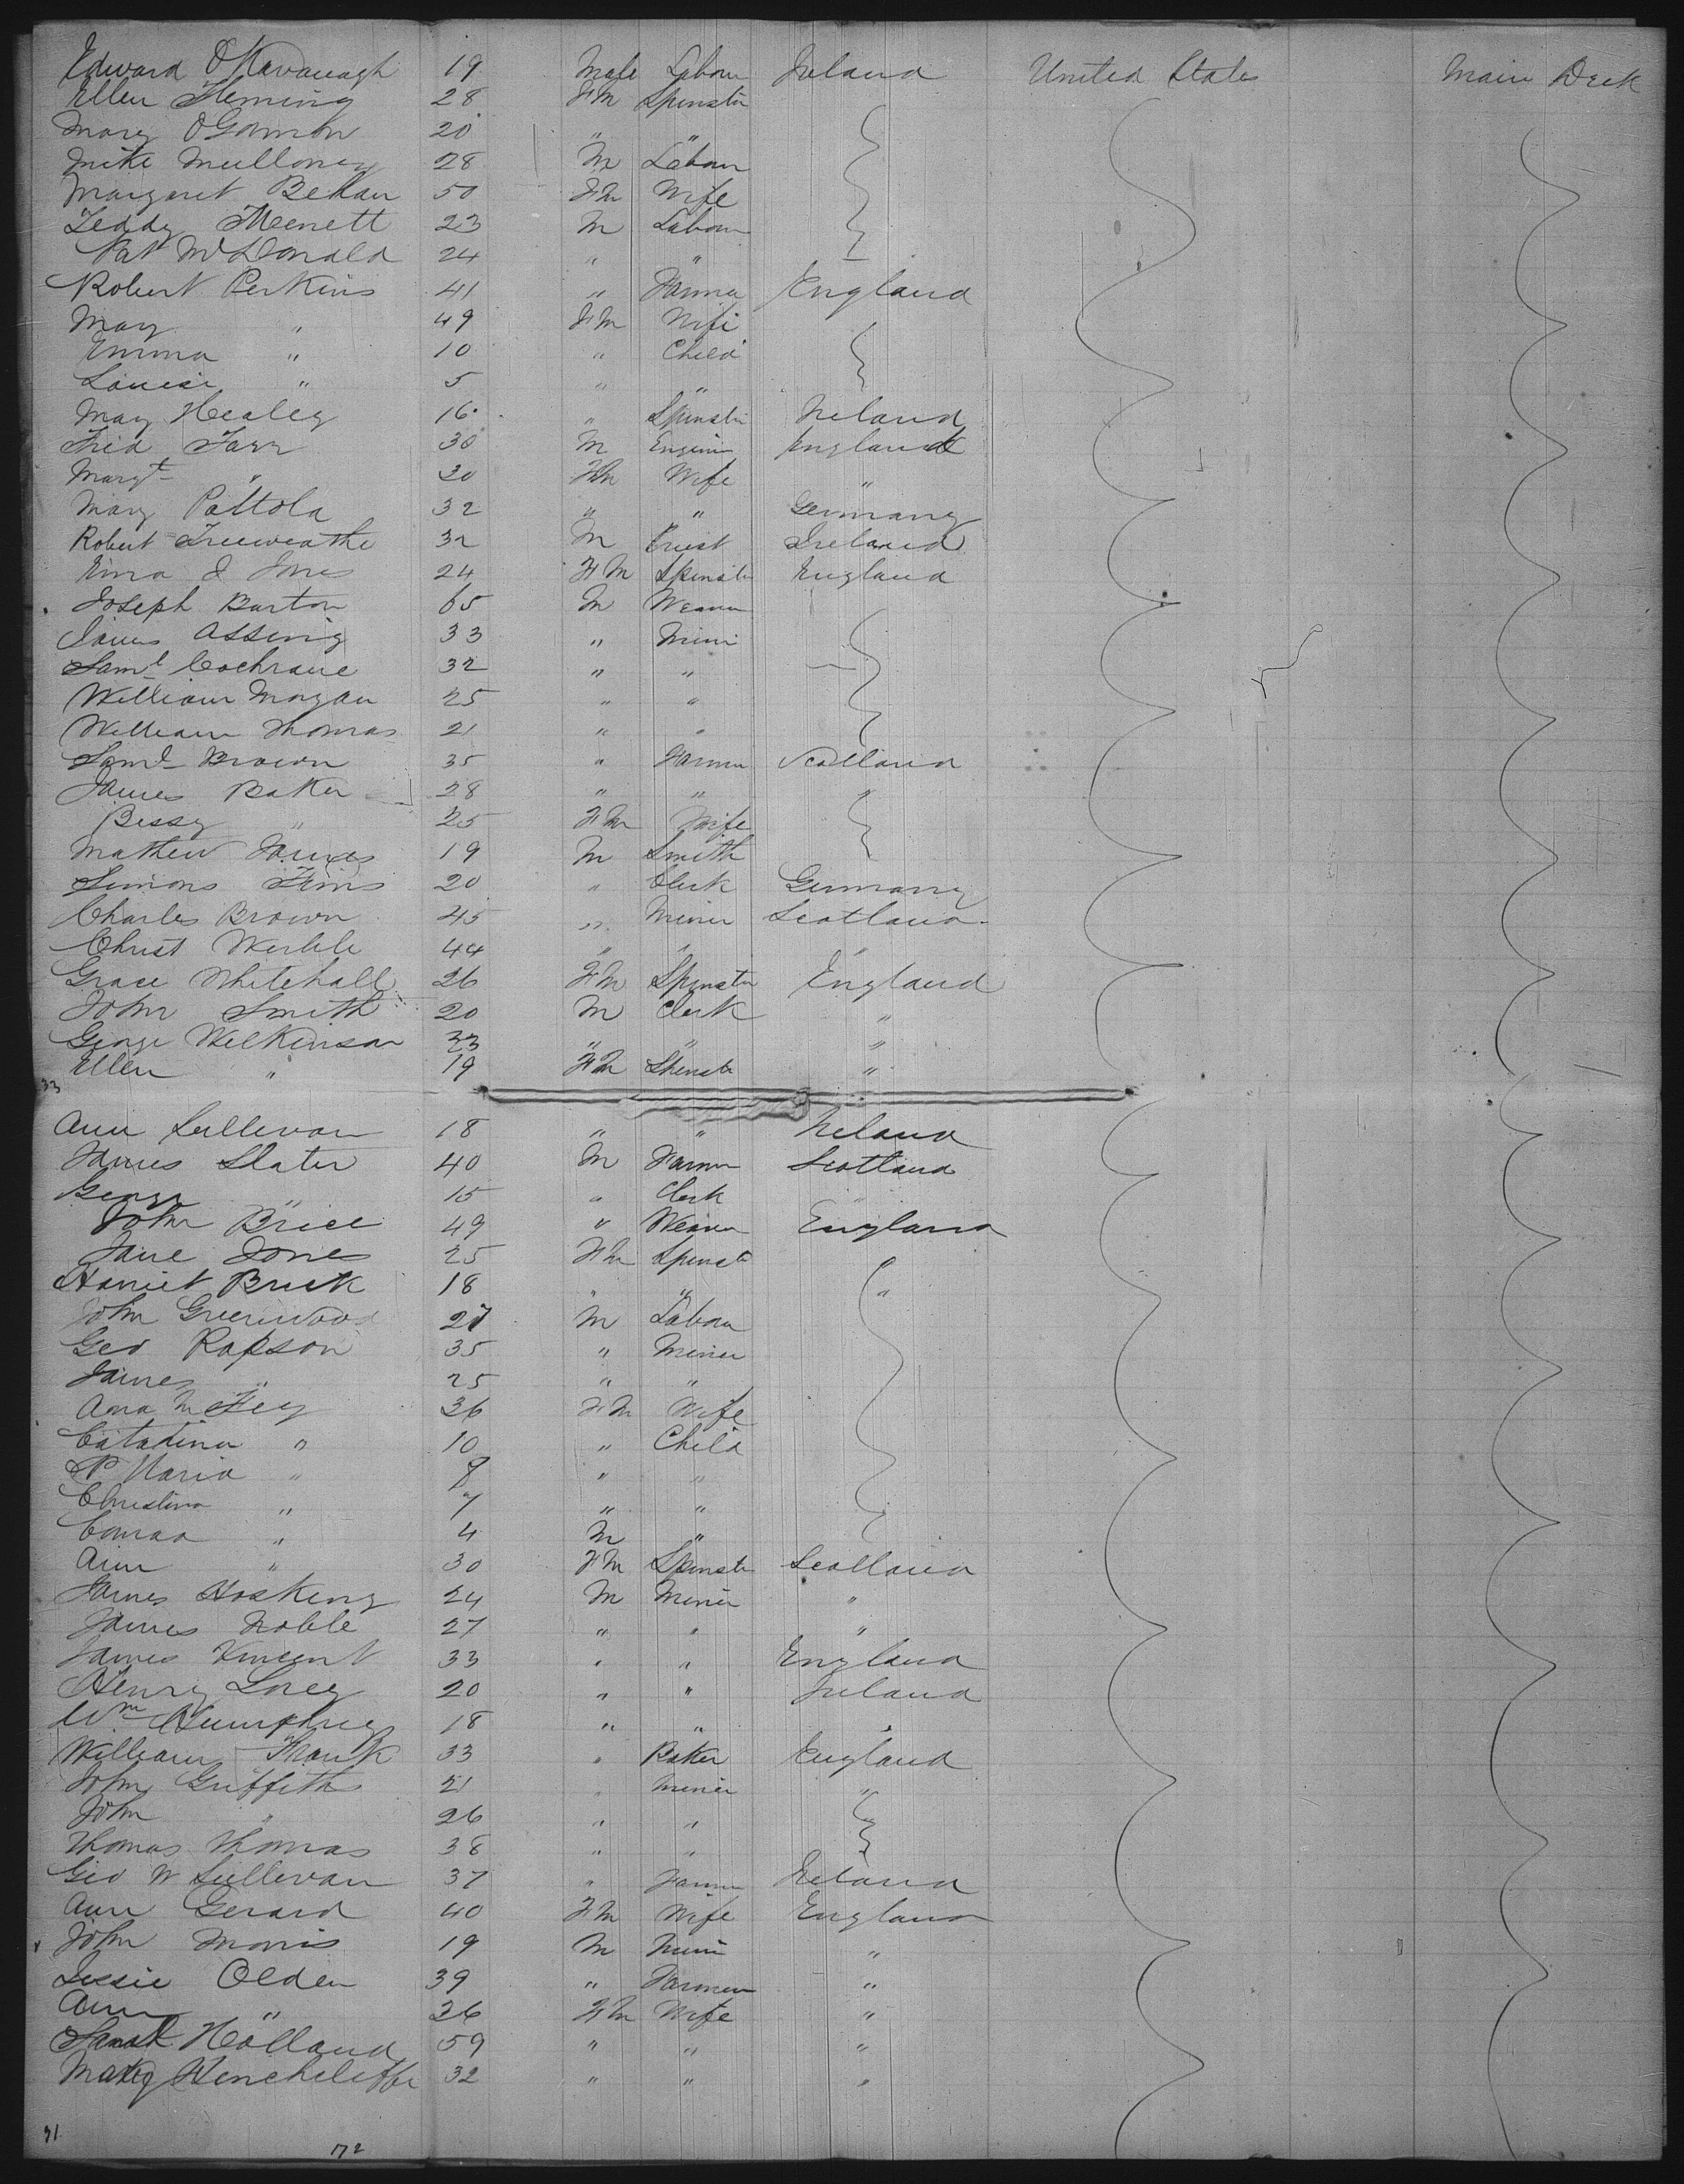 Edward O'Kavanagh 19 Male Labour Ireland United States Main Deck
Ellen Fleming 28 Fm Spinster
Mary O'Gorman 20 " "
Mike Mulloney 28 M Labour
Margaret Behan 50 Fm Wife
Teddy 23 M Labour
Pat McDonald 24 " "
Robert Perkins 41 " Farmer England
Mary " 49 Fm Wife
Emma " 10 " Child
Louisa " 5 " "
Mary Healey 16 " Spinster Ireland
Fred Farr 30 M Engineer England
Margt " 20 Fm Wife "
Mary Pattola 32 " " Germany
Robert 32 M Priest Ireland
Emma J Jones 24 Fm Spinster England
Joseph Burton 65 M Weaver
James 33 " Miner
Saml Cochrane 32 " "
William Morgan 25 " "
William Thomas 21 " "
Saml Brown 35 " Farmer Scotland
James Baker 28 " " "
Bessy " 25 Fm Wife
Mathew James 19 M Smith
Simons 20 " Clerk Germany
Charles Brown 45 " Miner Scotland
Christ 44 " " "
Grace Whitehall 26 Fm Spinster England
John Smith 20 M Clerk "
George Wilkinson 33 " " "
Ellen " 19 Fm Spinster "
33
Ann Sullivan 18 " " Ireland
James Slater 40 M Farmer Scotland
George " 15 " Clerk
John Brice 49 " Weaver England
Jane Jones 25 Fm Spinster
Harriet 18 " " "
John Greenwood 27 M Labour
Geo Rapson 35 " Miner
James " 25 " "
Ana McFey 36 Fm Wife
Catadina " 10 " Child
Maria " 8 " "
Christina " 7 " "
Conrad " 4 M "
Ann " 30 Fm Spinster Scotland
James Hosking 24 M Miner "
James Noble 27 " " "
James Vincent 33 " " England
Henry 20 " " Ireland
Wm Humphrey 18 " " "
William Frank 33 " Baker England
John Griffith 21 " Miner "
John " 26 " "
Thomas Thomas 38 " "
Geo W Sullivan 37 " Farmer Ireland
Ann Gerard 40 Fm Wife England
John Morris 19 M Miner "
Jessie Olden 39 " Farmer "
Ann " 36 Fm Wife "
Sarah Holland 59 " " "
Mary Hinchcliffe 32 " " "
172